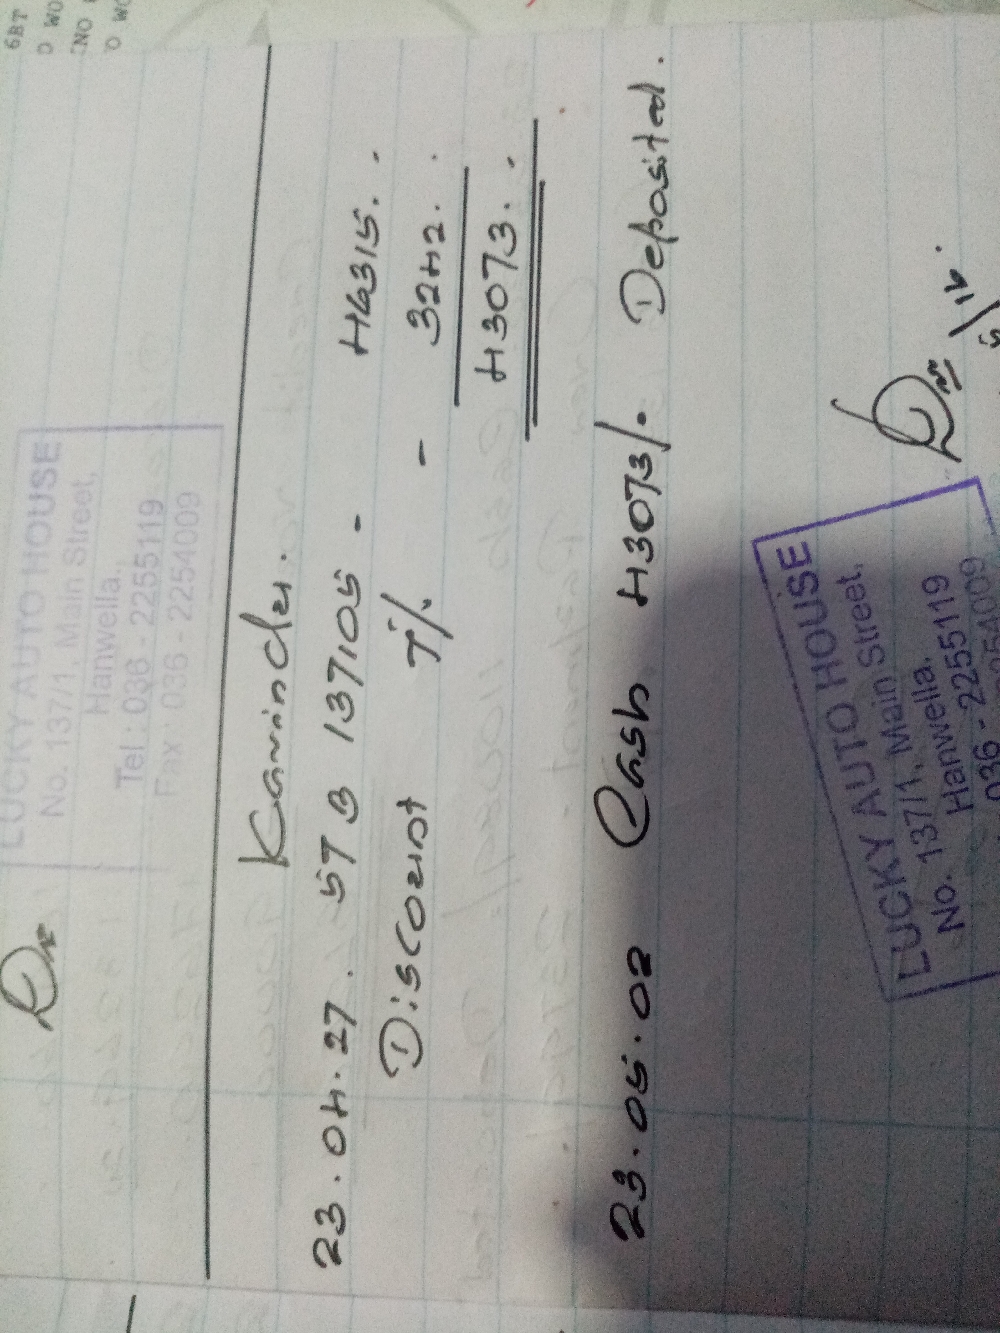 LUCKY AUTO HOUSE
No. 137/1, Main Street,
Hanwella.
Tel : 036 - 2255119
Fax : 036 - 2254009
Kavindu.
23.04.27. 57 B 137105 - 46315. -
Discount 7% - 3242. -
43073. -
23.05.02 Cash 43073/- Deposited.
LUCKY AUTO HOUSE
No. 137/1, Main Street,
Hanwella.
036 - 2255119
2254009